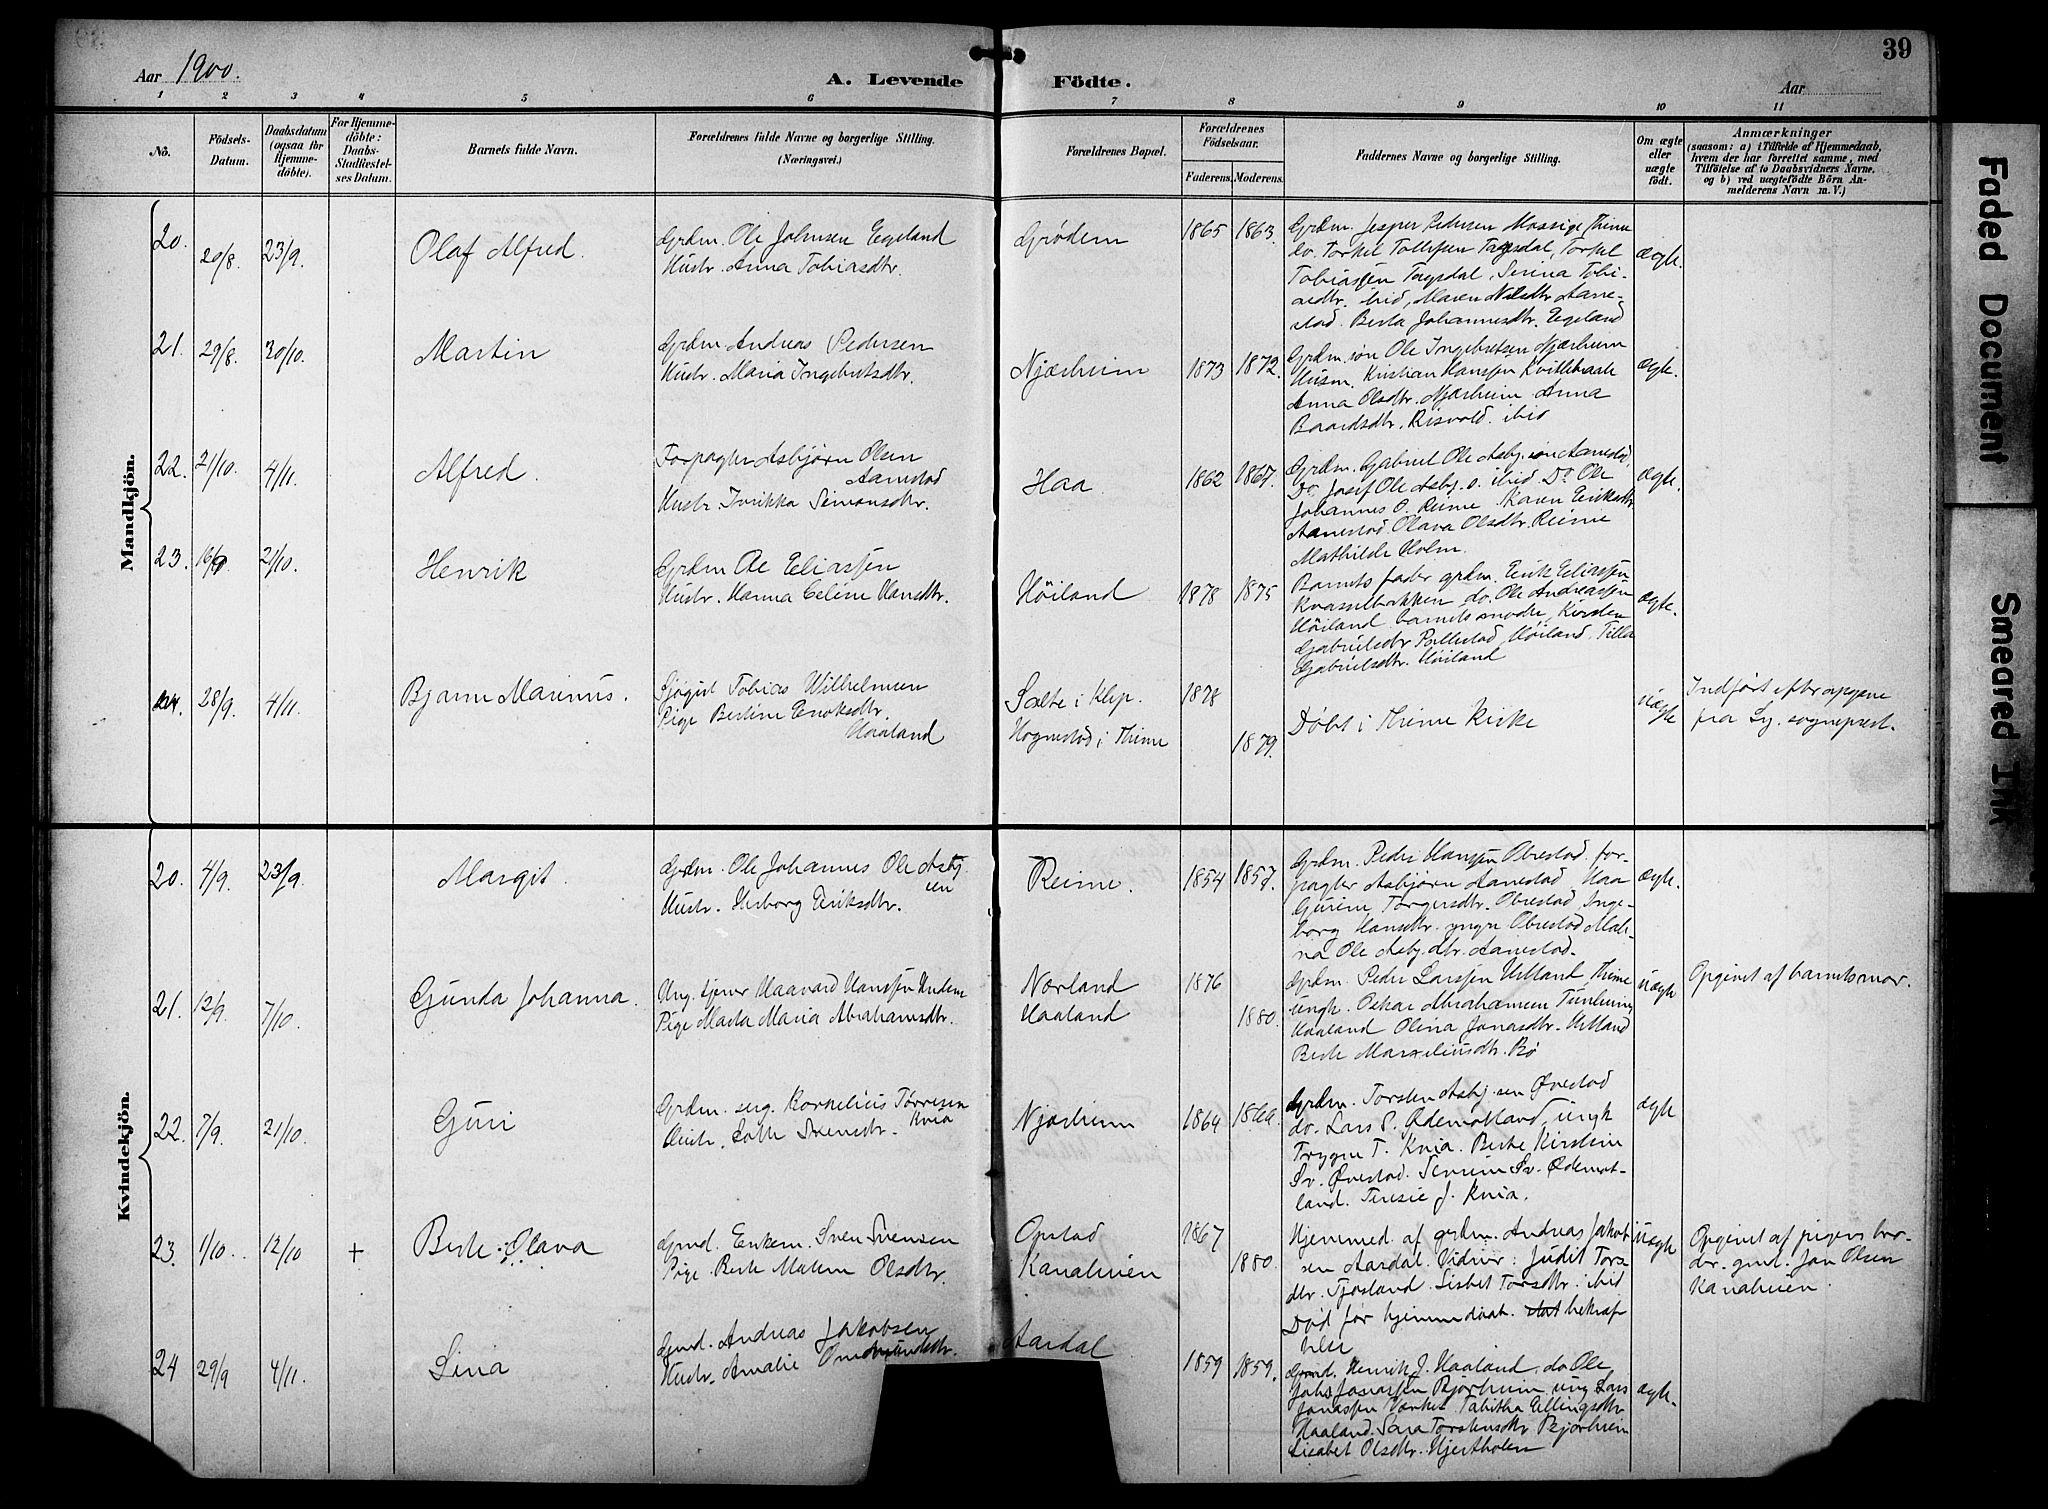 39
Aar 1900.
A. Levende Födte.
Aar
1 2 3 4 5 6 7 8 9 10 11
No.
Födsels-
Datum.
Daabsdatum
(ogsaa for
Hjemme-
döbte).
For Hjemme-
döbte:
Daabs-
Stadfæstel-
ses Datum.
Barnets fulde Navn.
Forældrenes fulde Navne og borgerlige Stilling.
(Næringsvei.)
Forældrenes Bopæl.
Forældrenes
Födselsaar.
Faderens. Moderens.
Faddernes Navne og borgerlige Stilling.
Om ægte
eller
uægte
födt.
Anmærkninger
(saasom: a) i Tilfælde af Hjemmedaab,
hvem der har forrettet samme, med
Tilföielse af to Daabsvidners Navne.
og b) ved uægtefödte Börn An-
melderens Navn m. V.)
Mandkjön.
20. 20/8. 23/9. Olaf Alfred.
Grdm. Ole Johnsen Egeland
Hustr. Anna Tobiasdtr.
Grødem 1865 1863.
Grdm. Jesper Pedersen Mossige, Thime
do. Torkel Tollefsen Tagsdal, Torkel
Tobiassen Tagsdal, Serina Tobi-
asdtr. ibid, Maren Nilsdtr. Aane-
stad. Berta Johannesdtr. Egeland
ægte.
21. 29/8. 30/10. Martin
Grdm. Andreas Pedersen
Hustr. Maria Ingebretsdtr.
Njærheim 1873 1872.
Grdm. søn Ole Ingebretsen Njærheim
Husm. Kristian Hanssen Kvithbaale
Anna Olsdtr. Njærheim Anna
Baardsdtr. Risvold. ibid
ægte.
22. 21/10. 4/11. Alfred.
Forpagter Asbjørn Olsen
Aanestad
Hustr. Simonsdtr.
Haa. 1862 1867.
Grdm. Gabriel Ole Asbj. søn Aanestad,
Do. Josef Ole Asbj. s. ibid. Do. Ole
Johannes O. Reime Karen Eriksdtr.
Aanestad Olava Olsdtr. Reime
Mathilde Holm.
ægte.
23. 16/9 21/10. Henrik
Grdm. Eliassen
Hustr. Hanna Celine Hansdtr.
Høiland 1878 1875
Barnets fader grdm. Erik Eliassen
Kvasselbakken do. Ole Andreassen
Høiland barnets moder, Kirsten
Gabrielsdtr. Høiland. Tilla
Gabrielsdtr. Høiland
ægte.
24. 28/9. 4/11. Bjarne Marinus.
Sjøgut Tobias Wilhelmsen
Pige Bertine Enoksdtr.
Haaland
Salte i Klep. 1878
Hognestad i Thime 1879.
Døbt i Thime Kirke
uægte
Indført efter opgave
fra Ly. sogneprest.
Kvindekjön.
20. 4/9. 23/9. Margit.
Grdm. Ole Johannes Ole Asbj.
sen
Hustr. Herborg Eriksdtr.
Reime. 1854 1857.
Grdm. Peder Hanssen Obrestad. for-
pagter Asbjørn Aanestad Haa
Gurine Torgersdtr. Obrestad, Inge-
borg Hansdtr. yngre Obrestad Mal-
na Ole Asbj. dtr. Aanestad.
ægte.
21. 12/9. 7/10. Gunda Johanna.
Ung. tjener Haavard Hanssen
Pige Marta Maria Abrahamsdtr.
Nærland 1876
Haaland 1880.
Grdm. Peder Larssen Hetland, Thime
ungk. Oskar Abrahamsen Tunheim,
Haaland Olina Jonasdtr. Hetland
Berte Marseliusdtr. Bø
uægte
Opgivet af barnets mor.
22. 7/9. 21/10. Guri
Grdm. serg. Kornelius Tørresen
Kvia
Hustr. Lotte Svensdtr.
Njærheim 1864 1869.
Grdm. Torsten Asbj. sen Øvestad
do. Lars S. Ødemotland, ungk
Trygve T. Kvia. Berte Kirstein
Sv. Øvestad. Sv. Ødemot-
land. Teresie J. Kvia.
ægte
23. 1/10. 12/10 + Berte Olava
Grmd. Enkem. Sven Svensen
Pige Berte Malene Olsdtr.
Opstad 1867
Kanalveien 1880.
Hjemmed af grdm. Andreas Jakob
sen Aardal. Vidner: Judit Tors
dtr. Tjøsland. Lisbet Torsdtr. ibid
Død før hjemmedaab.
uægte
Opgivet af pigens bro-
der. gmd. Jon Olsen
Kanalveien.
24 29/9 4/11. Lina
Grmd. Andreas Jakobsen
Hustr. Amalie Omundsdtr.
Aardal 1859 1859.
Grmd. Henrik J. Haaland. do Ole
Bjorheim ung Lars
Jonassen Varhet Tabitha Ellingsdtr.
Haaland. Sara Torstensdtr Bjorheim
Lisabet Olsdtr. Hjertholen
ægte.
Faded Document
Smeared Ink